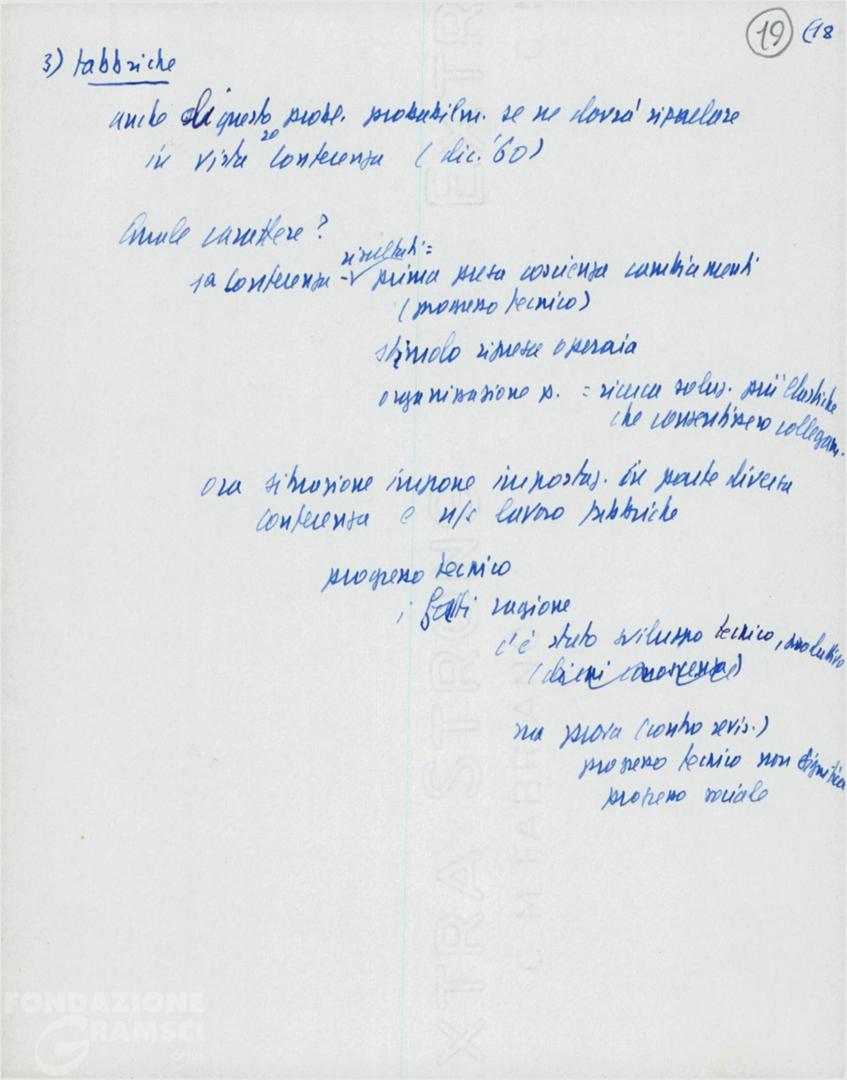 19 (18
3) fabbriche
anche di questo probl. probabilm. se ne dovrà riparlare
in vista 2a Conferenza (dic. '60)
Quale carattere?
risultati =
1a Conferenza - prima presa coscienza cambiamenti
(progresso tecnico)
stimolo ripresa operaia
organizzazione p. = ricerca soluz. più elastiche
che consentissero collegam.
ora situazione impone impostaz. in parte diversa
conferenza e n/s lavoro fabbriche
progresso tecnico
i fatti ragione
c'è stato sviluppo tecnico, produttivo
ma prova (contro revis.)
progresso tecnico non significa
progresso sociale
XTRA STRONG EXTR
C M FABRIAN
FONDAZIONE
GRAMSCI